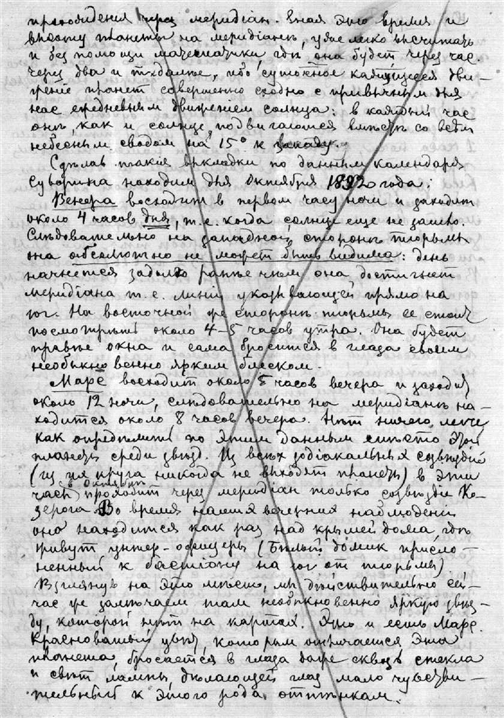 прохождения через меридіан. Зная это время и
высоту планеты на меридіанѣ, уже легко высчитать
и без помощи математики, гдѣ она будет через час,
через два и т.д., ибо суточное кажущееся дви-
жение планет совершенно сходно с привычным для
нас ежедневным движением солнца: в каждый час
онѣ, как и солнце, подвигаются вмѣстѣ со всѣм
небесным сводом на 15° к западу.
Сдѣлав такие выкладки по данным календаря
Суворина находим для октября 1892 года:
Венера восходит в первом часу ночи и заходит
около 4 часов дня, т.е. когда солнце еще не зашло.
Слѣдовательно на западной сторонѣ тюрьмы
она абсолютно не может быть видима: день
начнется задолго раньше чѣм она достигнет
меридіана т.е. линіи указывающей прямо на
юг. На восточной же сторонѣ тюрьмы ее стоит
посмотрѣть около 4-5 часов утра. Она будет
правѣе окна и сама бросится в глаза своим
необыкновенно ярким блеском.
Марс восходит около 5 часов вечера и заходит
около 12 ночи, слѣдовательно на меридіанѣ на-
ходится около 8 часов вечера. Нѣт ничего легче
как опредѣлить по этим данным мѣсто этой
планеты среди звѣзд. Из всѣх зодіакальных созвѣздій
(из их круга никогда не выходят планеты) в эти
часы проходит через меридіан только созвѣздіе Ко-
зерога. Во время наших вечерних наблюденій
оно находится как раз над крышей дома, гдѣ
живут унтер-офицеры (Бѣлый домик присло-
ненный к бастіону на юг от тюрьмы)
Взглянув на это мѣсто, мы дѣйствительно сей-
час же замѣчаем там необыкновенно яркую звѣз-
ду, которой нѣт на картах. Это и есть Марс.
Красноватый цвѣт, которым отличается эта
планета, бросается в глаза даже сквозь стекла
и свѣт лампы, дѣлающей глаз мало чувстви-
тельный к этого рода оттѣнкам.